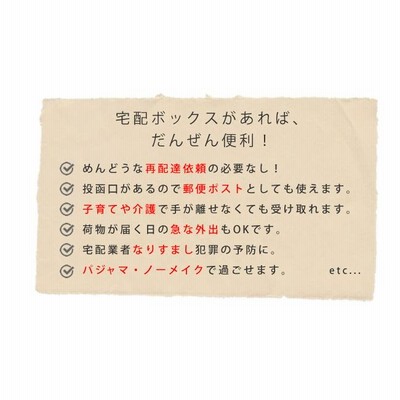 宅配ボックスがあれば、
だんぜん便利！
めんどうな再配達依頼の必要なし！
投函口があるので郵便ポストとしても使えます。
子育てや介護で手が離せなくても受け取れます。
荷物が届く日の急な外出もOKです。
宅配業者なりすまし犯罪の予防に。
パジャマ・ノーメイクで過ごせます。 etc...